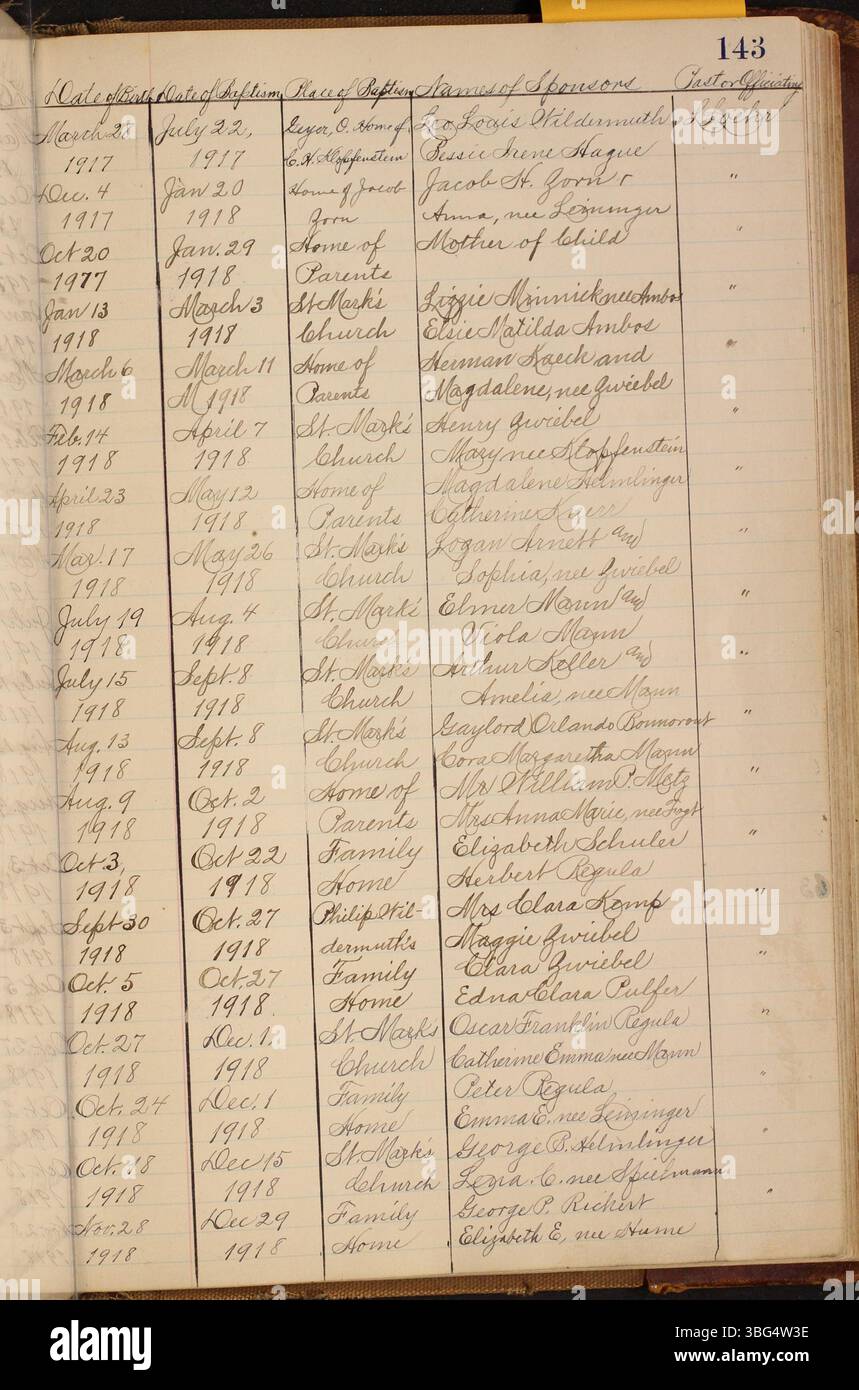 143
Date of Birth Date of Baptism Place of Baptism Names of Sponsors Pastor Officiating
March 28 July 22, Geyer, O. Home of Leo Louis Wildermuth
1917 1917 C. H. Klopfenstein Bessie Irene Hague
Dec. 4 Jan 20 Home of Jacob Jacob H. Zorn "
1917 1918 Zorn Anna, nee Leininger
Oct 20 Jan. 29 Home of Mother of Child "
1977 1918 Parents
Jan 13 March 3 St Mark's Lizzie Minnick nee Ambos "
1918 1918 Church Elsie Matilda Ambos
March 6 March 11 Home of Herman Kaeck and "
1918 M 1918 Parents Magdalene, nee Zwiebel
Feb. 14 April 7 St. Mark's Henry Zwiebel "
1918 1918 Church Mary nee Klopfenstein
April 23 May 12 Home of Magdalene Helmlinger "
1918 1918 Parents Catherine Knerr
Mar. 17 May 26 St. Mark's Logan Arnett and "
1918 1918 Church Sophia, nee Zwiebel
July 19 Aug. 4 St. Mark's Elmer Mann and "
1918 1918 Church Viola Mann
July 15 Sept. 8 St. Mark's Arthur Keller and "
1918 1918 Church Amelia, nee Mann
Aug. 13 Sept. 8 St. Mark's Gaylord Orlando "
1918 1918 Church Cora Margaretha Mann
Aug. 9 Oct. 2 Home of Mr William P. Metz "
1918 1918 Parents Mrs Anna Marie, nee Fogt
Oct. 3, Oct 22 Family Elizabeth Schuler "
1918 1918 Home Herbert Regula
Sept 30 Oct. 27 Philip Wil- Mrs Clara Kemp "
1918 1918 dermuth's Maggie Zwiebel
Oct. 5 Oct. 27 Family Clara Zwiebel "
1918 1918 Home Edna Clara Pulfer
Oct. 27 Dec. 1. St. Mark's Oscar Franklin Regula "
1918 1918 Church Catherine Emma nee Mann
Oct. 24 Dec. 1 Family Peter Regula "
1918 1918 Home Emma E. nee Leininger
Oct. 18 Dec 15 St. Mark's George B. Helmlinger "
1918 1918 Church Lena. C. nee Spielmann
Nov. 28 Dec 29 Family George P. Rickert "
1918 1918 Home Elizabeth E, nee Hume
alamy
alamy
Image ID: 3BG4W3E
www.alamy.com